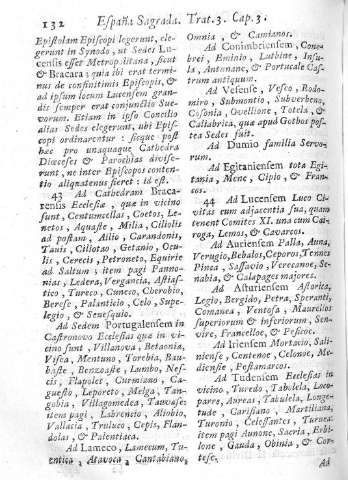 132 España Sagrada. Trat. 3. Cap. 3.
Epistolam Episcopi legerunt, ele-
gerunt in Synodo, ut Sedes Lu-
censis esset Metropolitana, sicut
& Bracara; quia ibi erat termi-
nus de confinitimis Episcopis, &
ad ipsum locum Lucensem gran-
dis semper erat conjunctio Sue-
vorum. Etiam in ipso Concilio
alias Sedes elegerunt, ubi Epis-
copi ordinarentur: sicque post
hæc pro unaquaque Cathedra
Diœceses & Parochias divise-
runt, ne inter Episcopos conten-
tio aliquatenus fieret: id est.
43 Ad Cathedram Braca-
rensis Ecclesiæ, quæ in vicino
sunt, Centumcellas, Coetos, Le-
netos, Aquaste, Milia, Ciliolis
ad postam, Ailio, Carandonis,
Tauis, Ciliotao, Getanio, Ocu-
lis, Cerecis, Petroneto, Equirie
ad Saltum; item pagi Panno-
nias, Ledera, Vergancia, Astias-
tico, Tureco, Cuneco, Cherobio,
Berese, Palanticio, Celo, Supe-
legio, & Senequio.
Ad Sedem Portugalensem in
Castronovo Ecclesias quæ in vi-
cino sunt, Villanova, Betaonia,
Visea, Mentuno, Torebia, Bau-
baste, Benzoaste, Lumbo, Nes-
cis, Flapolet, Curmiano, Ca-
guesto, Leporeto, Melga, Tan-
gobia, Villagomedea, Tauvasse:
item pagi, Labrencio, Aliobio,
Vallacia, Truluco, Cepis, Flan-
dolas, & Palentiaca.
Ad Lameco, Lamecum, Tu-
entica, Aravoca, Cantabiano,
Omnia, & Camianos.
Ad Conimbriensem, Conem-
brei, Eminio, Lutbine, Insu-
la, Antonane, & Portucale Cas-
trum antiquum.
Ad Vesense, Vesco, Rodo-
miro, Submontio, Subverbeno,
Cosonia, Ovellione, Totela, &
Caliabrica, quæ apud Gothos pos-
tea Sedes fuit.
Ad Dumio familia Servo-
rum.
Ad Egitaniensem tota Egi-
tania, Mene, Cipio, & Fran-
cos.
44 Ad Lucensem Luco Ci-
vitas cum adjacentia sua, quam
tenent Comites XI. una cum Ca-
roga, Lemos, & Cavarcos.
Ad Auriensem Palla, Auna,
Verugio, Bebalos, Ceporos, Tennes
Pinea, Sassavio, Verecanse, Se-
nabia, & Calapages majores.
Ad Asturiensem Astorica,
Legio, Bergido, Petra, Speranti,
Comanea, Ventosa, Maurellos
superiorum & inferiorum, Sen-
vire, Francelloe, & Pesicoe.
Ad Iriensem Mortacio, Sali-
niense, Centenoe, Celenoe, Me-
diense, Pestamarcos.
Ad Tudensem Ecclesias in
vicino, Turedo, Tabulela, Loco-
parre, Aureas, Tabulela, Longe-
tude, Carisiano, Martiliana,
Turonio, Celesantes, Turuca:
item pagi Aunone, Sacria, Erbi-
lione, Gauda, Obinia, & Car-
tese.
Ad